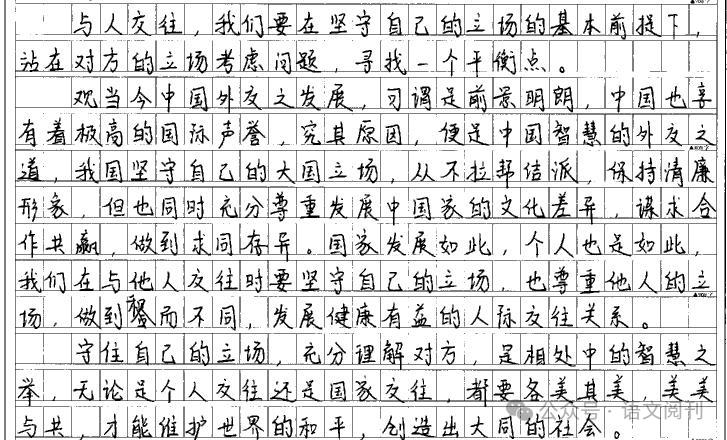 与人交往，我们要在坚守自己的立场的基本前提下，
站在对方的立场考虑问题，寻找一个平衡点。
观当今中国外交之发展，可谓是前景明朗，中国也享
有着极高的国际声誉，究其原因，便是中国智慧的外交之
道，我国坚守自己的大国立场，从不拉帮结派，保持清廉
形象，但也同时充分尊重发展中国家的文化差异，谋求合
作共赢，做到求同存异。国家发展如此，个人也是如此，
我们在与他人交往时要坚守自己的立场，也尊重他人的立
场，做到和而不同，发展健康有益的人际交往关系。
守住自己的立场，充分理解对方，是相处中的智慧之
举，无论是个人交往还是国家交往，都要各美其美，美美
与共，才能维护世界的和平，创造出大同的社会。
公众号·语文阅刊